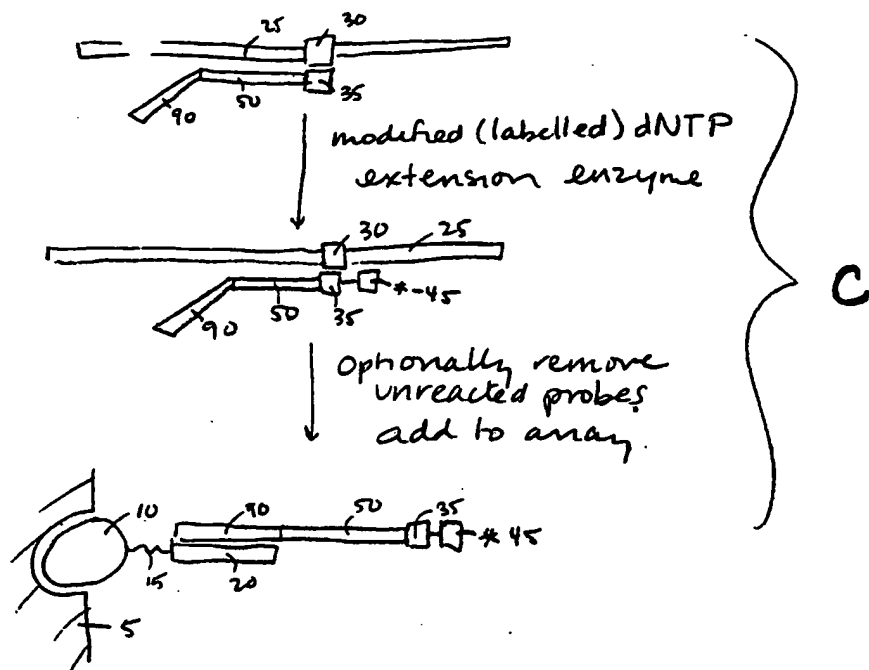 25 30
90 50 35
modified (labelled) dNTP
extension enzyme
30 25
90 50 35 *-45
C
Optionally remove
unreacted probes
add to array.
10 90 50 35 * 45
15 20
5